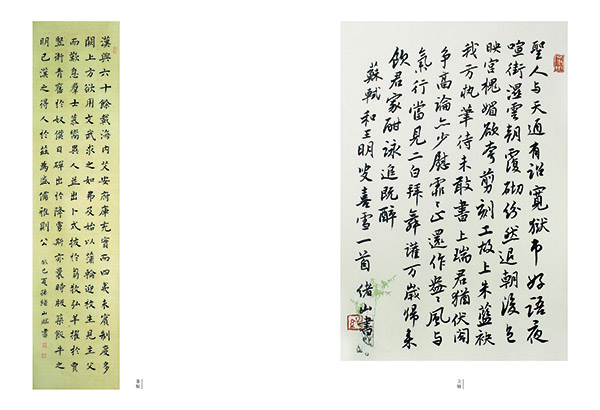 聖人与天通有詔寬獄市好語夜
喧街濕雲朝覆砌份然退朝後色
映宮槐媚欲夸剪刻工故上朱藍袂
我方執筆待未敢書上瑞君猶伏閤
爭高論亦少慰霏霏止還作盎盎風与
氣行當見二白拜舞讙万歲歸來
飲君家酣詠追既醉
蘇軾和王明叟喜雪一首 緒山書
漢興六十餘載海内乂安府庫充實而四夷未賓制度多
闕上方欲用文武求之如弗及始以蒲輪迎枚生見主父
而歎息羣士慕嚮異人並出卜式拔於芻牧弘羊擢於賈
豎衛青奮於奴僕日磾出於降虜斯亦曩時版築飯牛之
明已漢之得人於茲為盛儒雅則公 癸巳夏孫緒山書